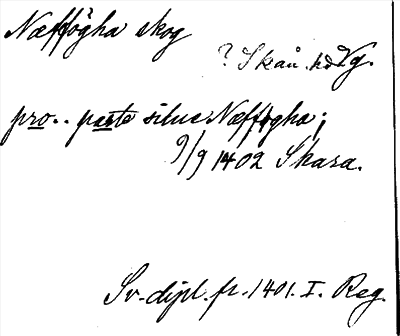 Næffögha skog
? Skån. hd Vg.
pro.. parte siluæ Næfføgha;
9/9 1402 Skara.
Sv. dipl. fr. 1401. I. Reg.